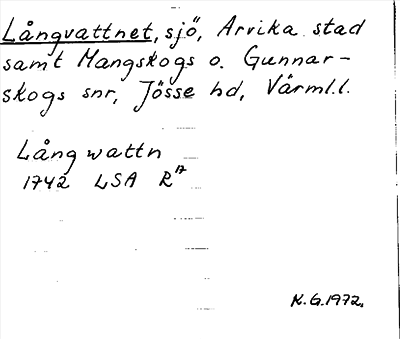 Långvattnet, sjö, Arvika stad
samt Mangskogs o. Gunnar-
skogs snr, Jösse hd, Värml.l.
Lång wattn
1742 LSA R¹⁷
K.G.1972.